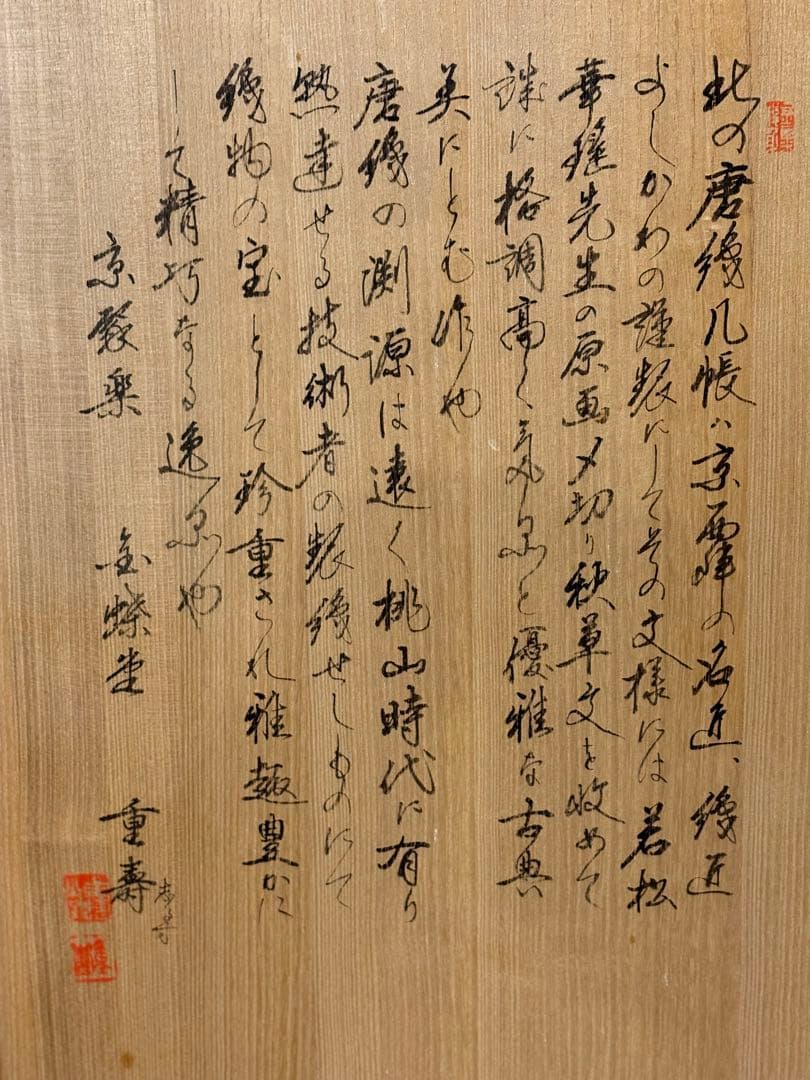 此の唐織几帳ハ京西陣の名匠、織匠
よしかわの謹製にしてその文様には若松
華瑤先生の原画〆切り秋草文を收めて
誠に格調高く気品と優雅な古典
美にとむ作也
唐織の渕源は遠く桃山時代に有り
熟達せる技術者の製織せしものにて
織物の宝として珍重され雅趣豊かに
して精巧なる逸品也
京聚楽 重壽